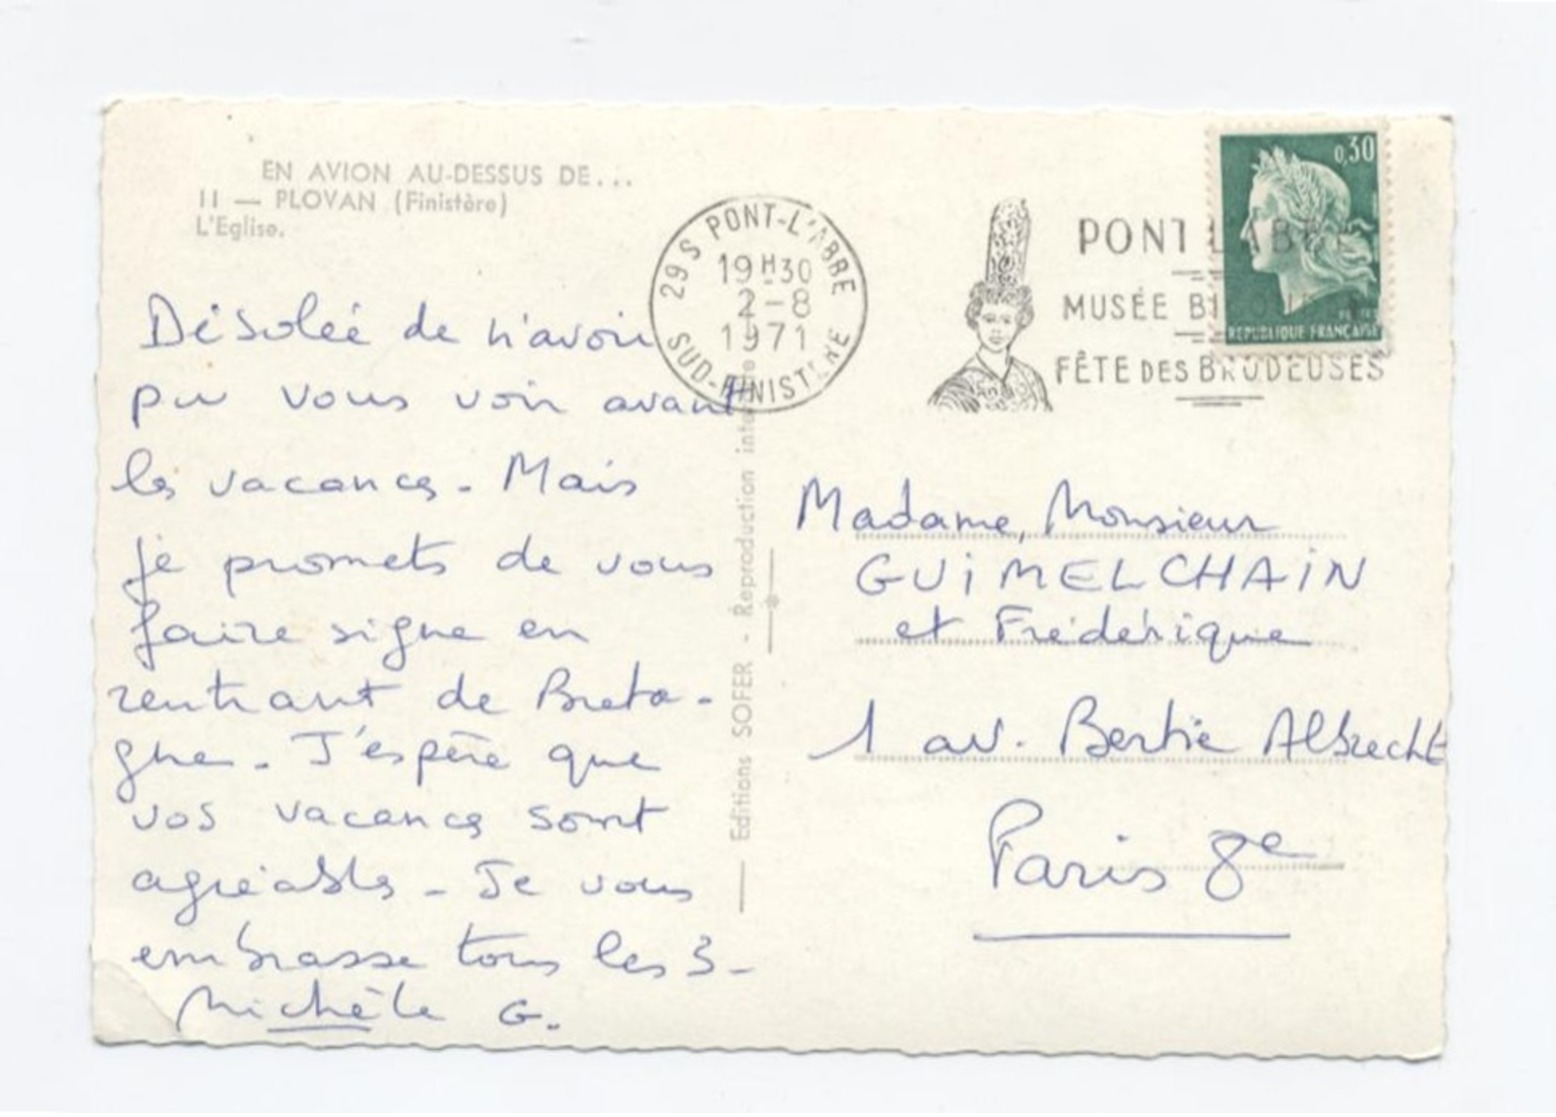 EN AVION AU-DESSUS DE...
11 — PLOVAN (Finistère)
L'Eglise.
Désolée de n'avoir
pu vous voir avant
les vacances. Mais
je promets de vous
faire signe en
rentrant de Breta-
gne. J'espère que
vos vacances sont
agréables - Je vous
embrasse tous les 3 -
Michèle G.
Editions SOFER - Reproduction
29 S PONT-L'ABBE
19H30
2-8
1971
SUD-FINISTERE
PONT L'ABBE
MUSÉE
FÊTE DES BRODEUSES
0,30
REPUBLIQUE FRANÇAISE
Madame, Monsieur
GUiMELCHAiN
et Frédérique
1 av. Bertie Albrecht
Paris 8e